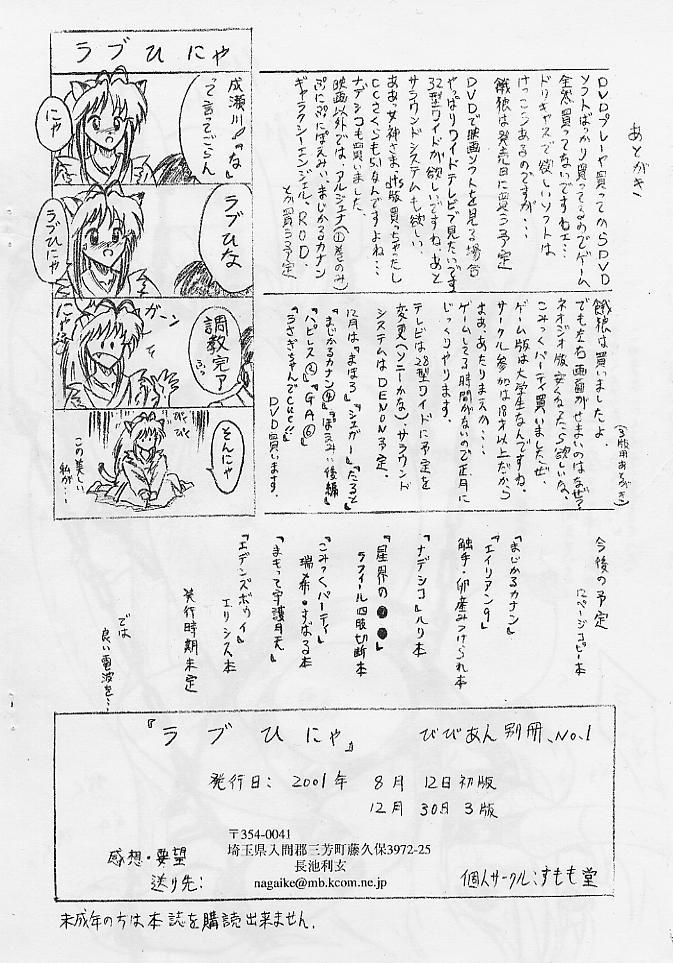 ラブひにゃ
成瀬川!「な」
って言ってごらん
にゃ
ラブひな
ラブひにゃ
調教完了
ふっ
ガーン
にゃ
そんにゃ
ぴく
ぴく
この美しい
私が…
あとがき
DVDプレーヤ買ってからDVD
ソフトばっかり買ってるのでゲーム
全然買ってないですねェ…
ドリキャスで欲しいソフトは
けっこうあるのですが…
餓狼は発売日に買う予定
DVDで映画ソフトを見る場合
やっぱりワイドテレビで見たいです
32型ワイドが欲しいですね。あと
サラウンドシステムも欲しい
ああっ女神さまっdts版買っちゃったし
CCさくらも5.1なんですよね…
ナデシコも買いました
映画以外では、アルジェナ(①巻のみ)
ぷにぷにぽえみぃ、まじかるカナン
ギャラクシーエンジェル、R.O.D.
とか買う予定
(3版用あとがき)
餓狼は買いましたよ。
でも左右画面がせまいのはなぜ?
ネオジオ版安くなったら欲しいな。
こみっくパーティ買いましたぜ。
ゲーム版は大学生なんですね。
サークル参加は18才以上だから
まあ、あたりまえか…
ゲームしてる時間がないので正月に
じっくりやります。
テレビは28型ワイドに予定を
変更(ソニーかな)、サラウンド
システムはDENON予定。
12月は『まほろ』『ジェガー』『だると』
『まじかるカナン④』『ぽえみぃ後編』
『ハピレス②』『GA⑥』
『うさぎちゃんでCue!!』
DVD買います。
今後の予定
12ページコピー本
『まじかるカナン』
『エイリアン9』
触手・卵産みつけられ本
『ナデシコ』ルリ本
『星界の●●』
ラフィール四肢切断本
『こみっくパーティ』
瑞希●すばる本
『まもって守護月天』
『エデンズボゥイ』
エリシス本
発行時期未定
では
良い電波を…
『ラブひにゃ』 びびあん別冊、No.1
発行日: 2001年 8月 12日初版
12月 30日 3版
感想・要望
送り先:
〒354-0041
埼玉県入間郡三芳町藤久保3972-25
長池利玄
nagaike@mb.kcom.ne.jp
個人サークル:すもも堂
未成年の方は本誌を購読出来ません.